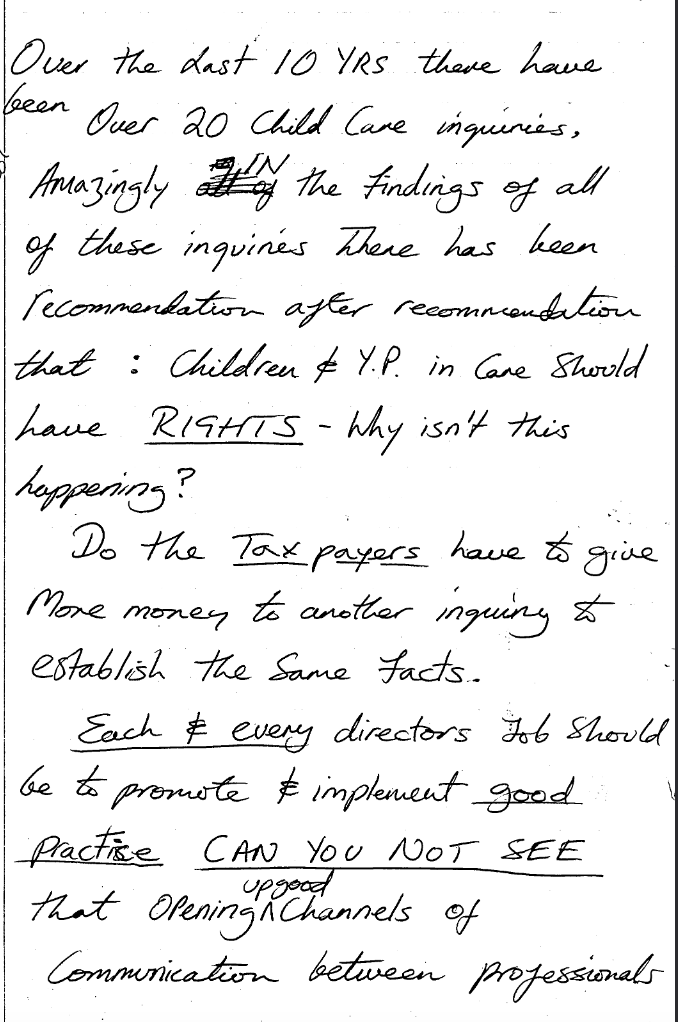 Over the last 10 YRS there have
been Over 20 Child Care inquiries,
Amazingly IN the findings of all
of these inquiries There has been
recommendation after recommendation
that : Children & Y.P. in Care Should
have RIGHTS - Why isn't this
happening?
Do the Tax payers have to give
More money to another inquiry to
establish the Same facts.
Each & every directors Job Should
be to promote & implement good
practise CAN YOU NOT SEE
that Opening up good Channels of
Communication between professionals